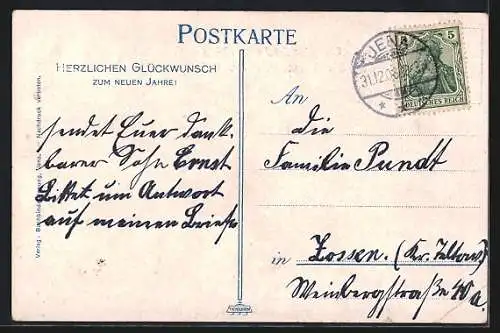 POSTKARTE
HERZLICHEN GLÜCKWUNSCH
ZUM NEUEN JAHRE!
sendet Euer dank-
barer Sohn Ernst
Bittet um Antwort
auf meinen Brief
JENA
31.12.08
5
DEUTSCHES REICH
An
die
Familie Pundt
in Zossen. (Kr. Teltow)
Weinbergstraße 40a.
Nachdruck verboten.
Verlag